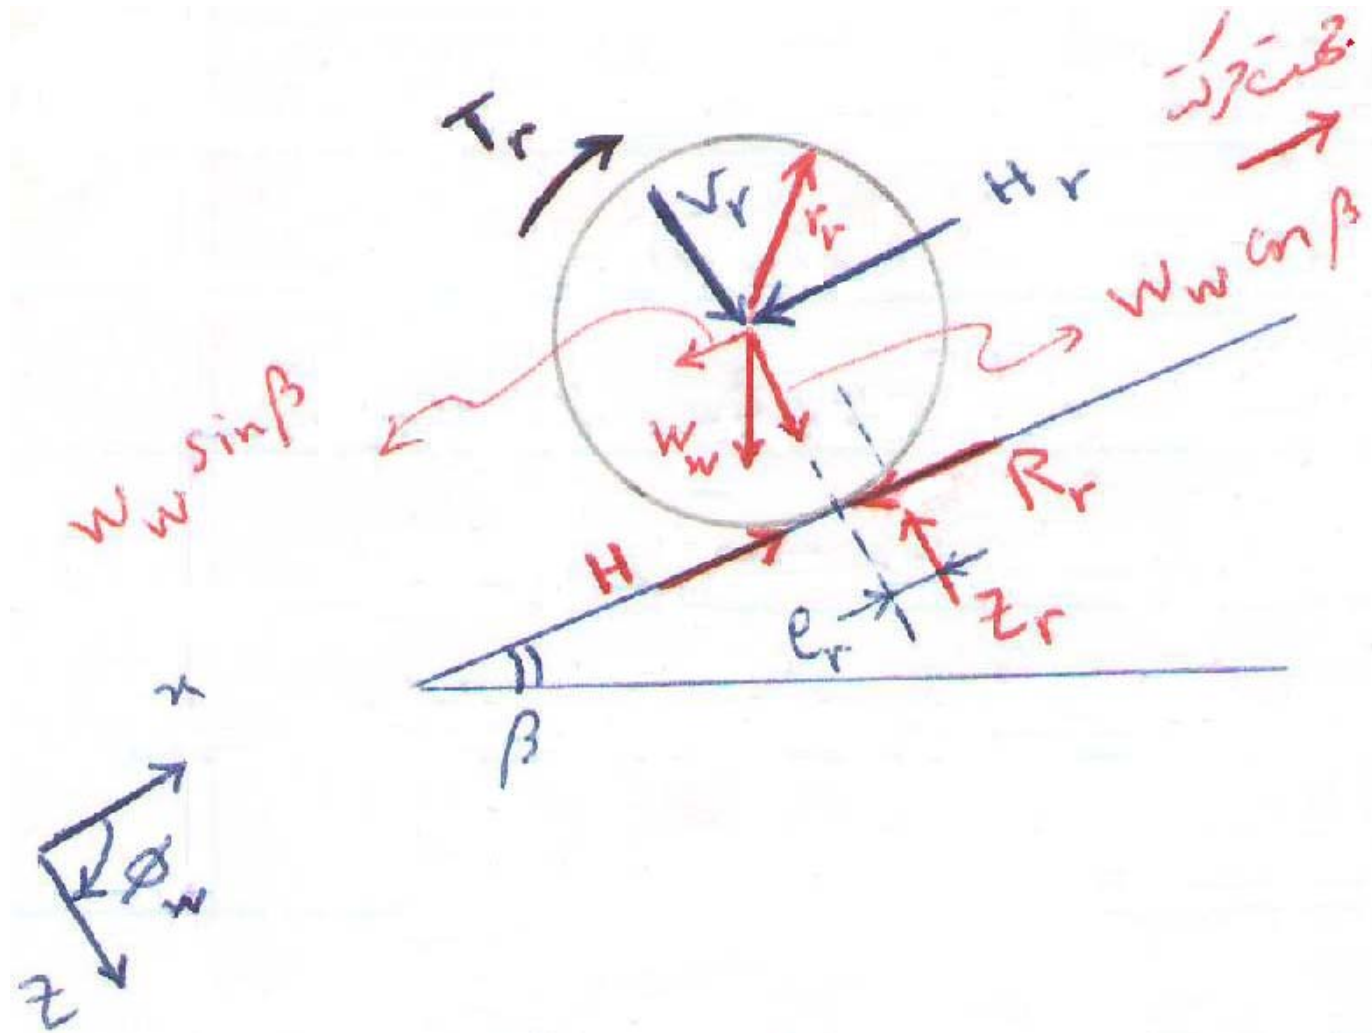 جهت حرکت
T_r
V_r
r_r
H_r
W_w cos β
W_w sin β
W_w
R_r
H
Z_r
e_r
β
x
ϕ_w
Z